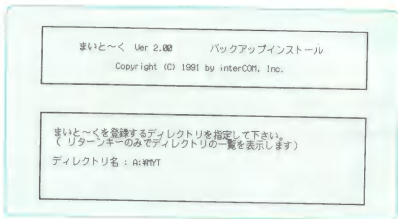 まいと～く Ver 2.00 バックアップインストール
Copyright (C) 1991 by interCOM, Inc.
まいと～くを登録するディレクトリを指定して下さい。
( リターンキーのみでディレクトリの一覧を表示します)
ディレクトリ名 : A:¥MYT